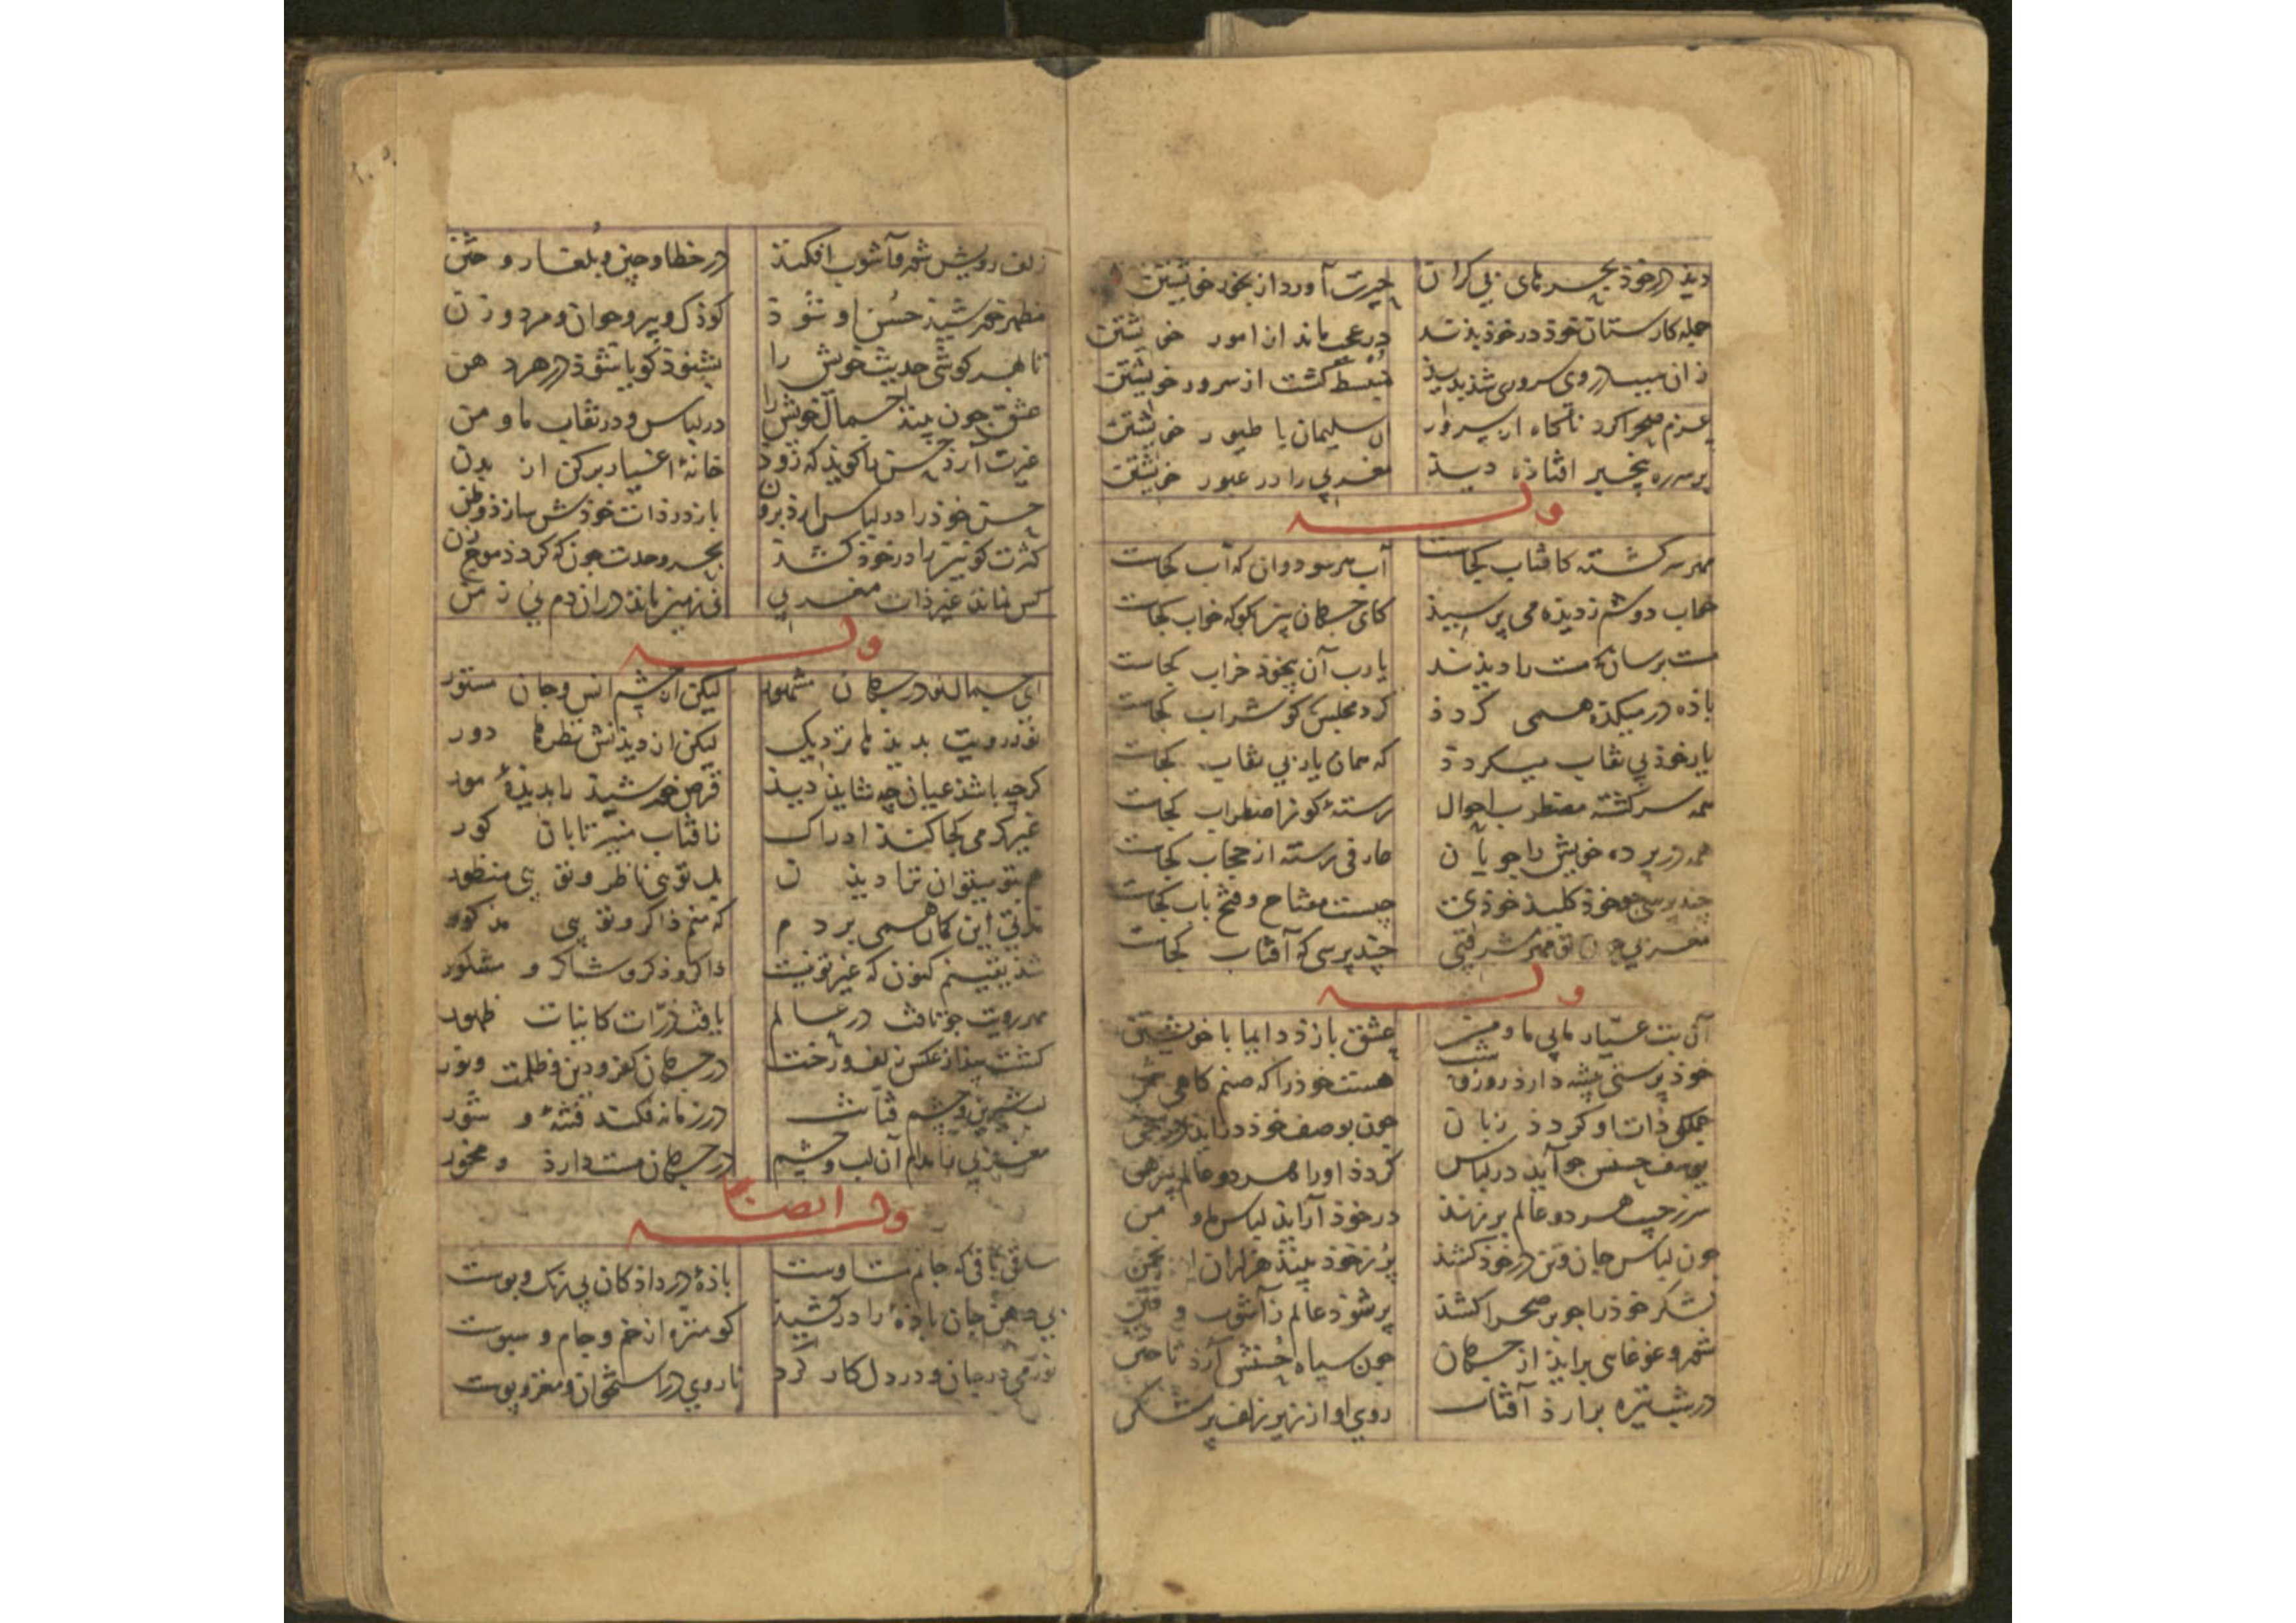 دیذ در خوذ بحرهای بی کران حیرت آورد از بحور خویشتن
جمله کارستان خوذ در خوذ بذید در عجب ماند از امور خویشتن
زان سبب در وی سروری شذ بدید منبسط گشت از سرور خویشتن
عزم صحرا کرد ناکاه از سرور آن سلیمان با طیور خویشتن
بر سر ره بنجیر افتاذه دیذ مغربی را در عبور خویشتن
وله
مهر سرکشته کافتاب کجاست آب هر سو دوان که آب کجاست
خواب دوشم ز دیذه می پرسیذ کای جهان بین بکو که خواب کجاست
مست برسان که مست را دیذند یا رب آن بیخوذ خراب کجاست
باذه در میکذه همی کردذ کرد مجلس کو شراب کجاست
یار خوذ بی نقاب میکردذ که همان یار بی نقاب کجاست
همه سرکشته مضطرب احوال رستهٔ کو ز اضطراب کجاست
همه در پرده خویش را جویان عارفی رسته از حجاب کجاست
چند پرسی جو خوذ کلیذ خوذی چیست مفتاح و فتح باب کجاست
مغربی چون تو مهر مشرقیی چند پرسی که آفتاب کجاست
وله
آن بت عیار مایی ما و من عشق بازذ دایما با خویشتن
خوذ پرستی پیشه دارذ روز و شب هست خوذ را که صنم کاهی شمن
جملکی ذات او کردذ زبان چون بوصف خوذ درآیذ در سخن
یوسف حسنش جو آیذ در لباس کردذ او را هر دو عالم پیرهن
سر ز جیب هر دو عالم بر زند در خوذ آرایذ لباس ما و من
چون لباس جان و تن در خوذ کشذ پر ز خوذ بینذ هزاران انجمن
لشکر خوذ را جو بر صحرا کشذ پر شوذ عالم ز آشوب و فتن
شور و غوغایی برایذ از جهان چون سپاه حسنش آرذ تاختن
در شب تیره برارذ آفتاب روی او از زیر زلف پر شکن
زلف رویش شور و آشوب افکنذ در خطا و چین و بلغار و ختن
مظهر خورشیذ حسن او شوذ کوذک و پیر و جوان و مرد و زن
تا بهر کوشی حدیث خویش را بشنوذ کویا شوذ در هر دهن
عشق چون بینذ جمال خویش را در لباس و در نقاب ما و من
غیرت آرذ حسن را کویذ که زوذ خانهٔ اغیار برکن از بدن
حسن خوذ را در لباس ارذ برون باز در ذات خوذش سازذ وطن
کثرت کونین را در خوذ کشذ بحر وحدت چون که کردذ موج زن
کس نماند غیر ذات مغربی نی زمین ماند در ان دم نی زمن
وله
ای جمال تو در جهان مشهور لیکن از چشم انس و جان مستور
نور رویت بدیذها نزدیک لیکن از دیذنش نظرها دور
کرچه باشذ عیان چه شایذ دیذ قرص خورشیذ را بدیذهٔ مور
غیر کرمی کجا کنذ ادراک ز افتاب منیر تابان کور
هم بتو میتوان ترا دیذن بل تویی ناظر و تویی منظور
مدتی این کمان همی بردم که منم ذاکر و تویی مذکور
شذ یقینم کنون که غیر تو نیست ذاکر و ذکر و شاکر و مشکور
مهر رویت جو تافت در عالم یافت ذرات کاینات ظهور
کشت پیذا ز عکس زلف و رخت در جهان کفر و دین و ظلمت و نور
لب شیرین و چشم فتانت در زمانه فکند فتنهٔ و شور
مغربی را مدام آن لب و چشم در جهان مست دارذ و مخمور
وله ایضا
ساقی باقی که جانم مست اوست باذهٔ در داذ کان بی رنک و بوست
بی دهن جان باذهٔ را درکشیذ کو منزه از خم و جام و سبوست
نور می در جان و در دل کار کرد تا روی در استخوان و مغز و پوست